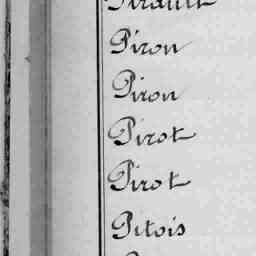 Pirault
Piron
Piron
Pirot
Pirot
Pitois